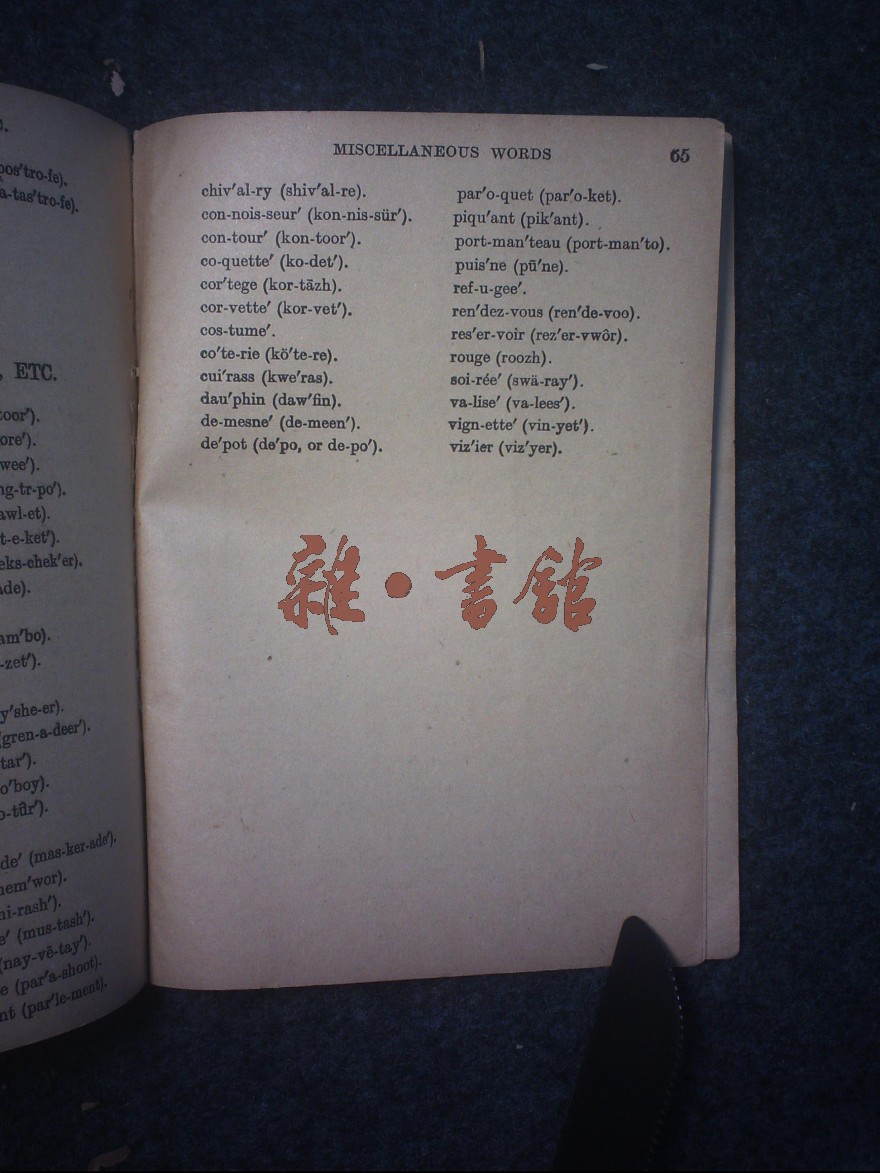 C.
pos′tro-fe).
a-tas′tro-fe).
, ETC.
toor′).
ore′).
wee′).
ng-tr-po′).
awl-et).
t-e-ket′).
eks-chek′er).
ade).
am′bo).
-zet′).
y′she-er).
gren-a-deer′).
tar′).
o′boy).
o-tûr′).
de′ (mas-ker-ade′).
nem′wor).
ni-rash′).
e′ (mus-tash′).
(nay-vê-tay′).
e (par′a-shoot).
nt (par′le-ment).
MISCELLANEOUS WORDS 65
chiv′al-ry (shiv′al-re).
con-nois-seur′ (kon-nis-sür′).
con-tour′ (kon-toor′).
co-quette′ (ko-det′).
cor′tege (kor-tāzh).
cor-vette′ (kor-vet′).
cos-tume′.
co′te-rie (kō′te-re).
cui′rass (kwe′ras).
dau′phin (daw′fin).
de-mesne′ (de-meen′).
de′pot (de′po, or de-po′).
par′o-quet (par′o-ket).
piqu′ant (pik′ant).
port-man′teau (port-man′to).
puis′ne (pū′ne).
ref-u-gee′.
ren′dez-vous (ren′de-voo).
res′er-voir (rez′er-vwôr).
rouge (roozh).
soi-rée′ (swä-ray′).
va-lise′ (va-lees′).
vign-ette′ (vin-yet′).
viz′ier (viz′yer).
雜·書館